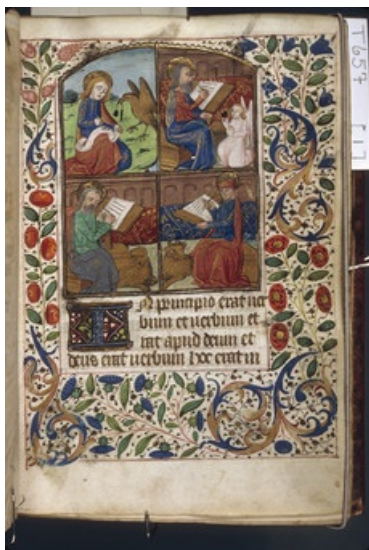 IN principio erat uer
bum et uerbum e
rat apud deum et
deus erat uerbum hoc erat in
T657 [1]